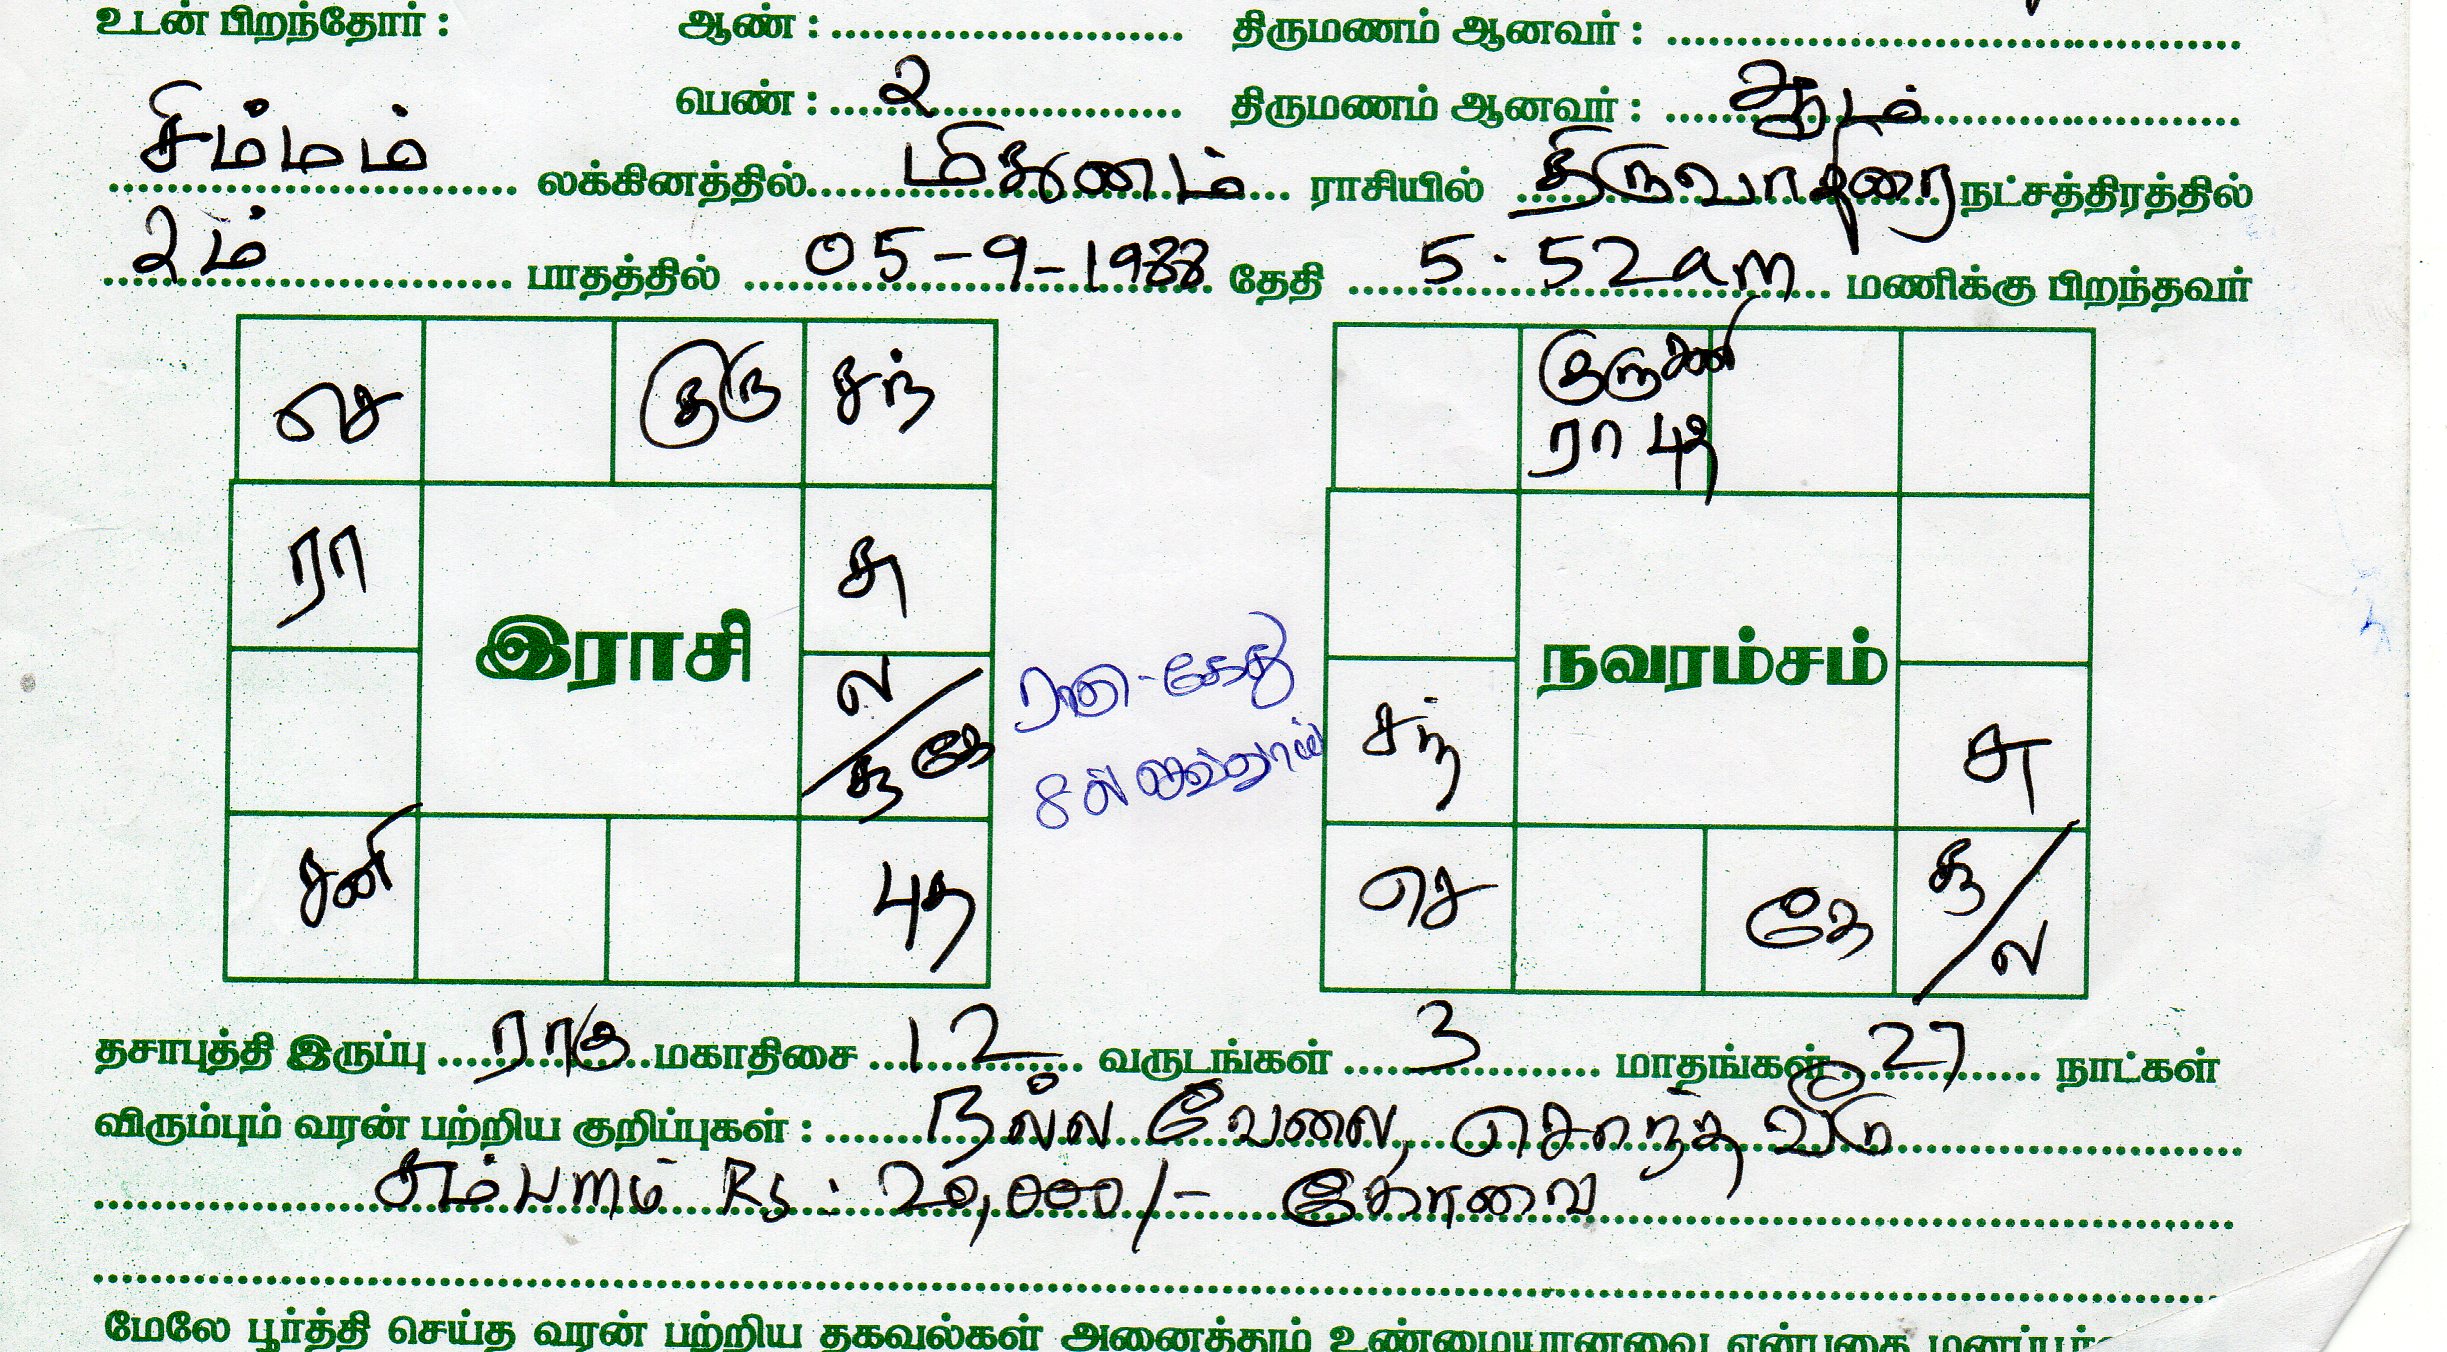 உடன் பிறந்தோர் : ஆண் : ........................ திருமணம் ஆனவர் : ........................
பெண் : 2 திருமணம் ஆனவர் : ஆம்
சிம்மம் லக்கினத்தில் மிதுனம் ராசியில் திருவாதிரை நட்சத்திரத்தில்
2ம் பாதத்தில் 05-9-1988 தேதி 5.52am மணிக்கு பிறந்தவர்
செ குரு சந்
ரா சு
இராசி
ல
சூ கே
சனி புத
ராகு - கேது
8ல் செவ்வாய்
குரு சனி
ரா புத
நவரம்சம்
சந் சு
செ கே சூ / ல
தசாபுத்தி இருப்பு ராகு மகாதிசை 12 வருடங்கள் 3 மாதங்கள் 27 நாட்கள்
விரும்பும் வரன் பற்றிய குறிப்புகள் : நல்ல வேலை, சொந்த வீடு
சம்பளம் Rs : 20,000/- கோவை
மேலே பூர்த்தி செய்த வரன் பற்றிய தகவல்கள் அனைத்தும் உண்மையானவை என்பதை